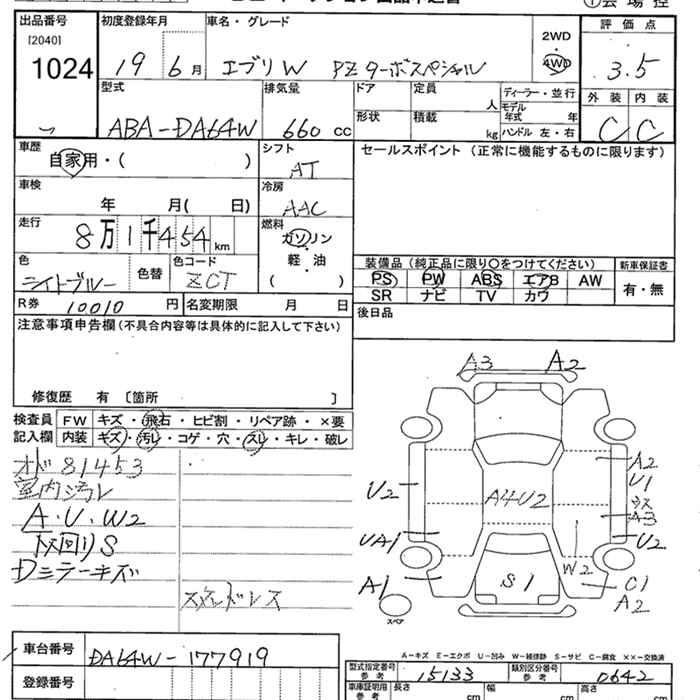 出品番号 初度登録年月 車名・グレード 評価点
[2040]
1024 19年6月 エブリW PZターボスペシャル 2WD 4WD 3.5
型式 排気量 ドア 定員 人 ディーラー・並行 外装 内装
形状 積載 kg モデル年式 年
ABA-DA64W 660cc ハンドル 左・右 C C
車歴 自家用・( ) シフト AT セールスポイント (正常に機能するものに限ります)
車検 年 月( 日) 冷房 AAC
走行 8万1千454km 燃料 ガソリン 軽・油 ( )
色 色替 色コード ZCT
ライトブルー
装備品 (純正品に限り○をつけてください) 新車保証書
PS PW ABS エアB AW 有・無
SR ナビ TV カワ
R券 10010円 名変期限 月 日
後日品
注意事項申告欄(不具合内容等は具体的に記入して下さい)
修復歴 有 [箇所 ]
検査員 FW キズ・飛石・ヒビ割・リペア跡・×要
記入欄 内装 キズ・汚レ・コゲ・穴・スレ・キレ・破レ
オド 81453
室内汚レ
A・U・W2
下回りS
Dミラーキズ
スペアタイヤレス
A3 A2
A2
U1
U2 A4U2
A3
UA1 U2
W2
A1 S1 C1
A2
スペア
A-キズ E-エクボ U-凹み W-補修跡 S-サビ C-腐食 ××-交換済
車台番号 DA64W-177919
登録番号
型式指定番号 参考 15133 類別区分番号 参考 0642
車庫証明用 参考 長さ cm 幅 cm 高さ cm